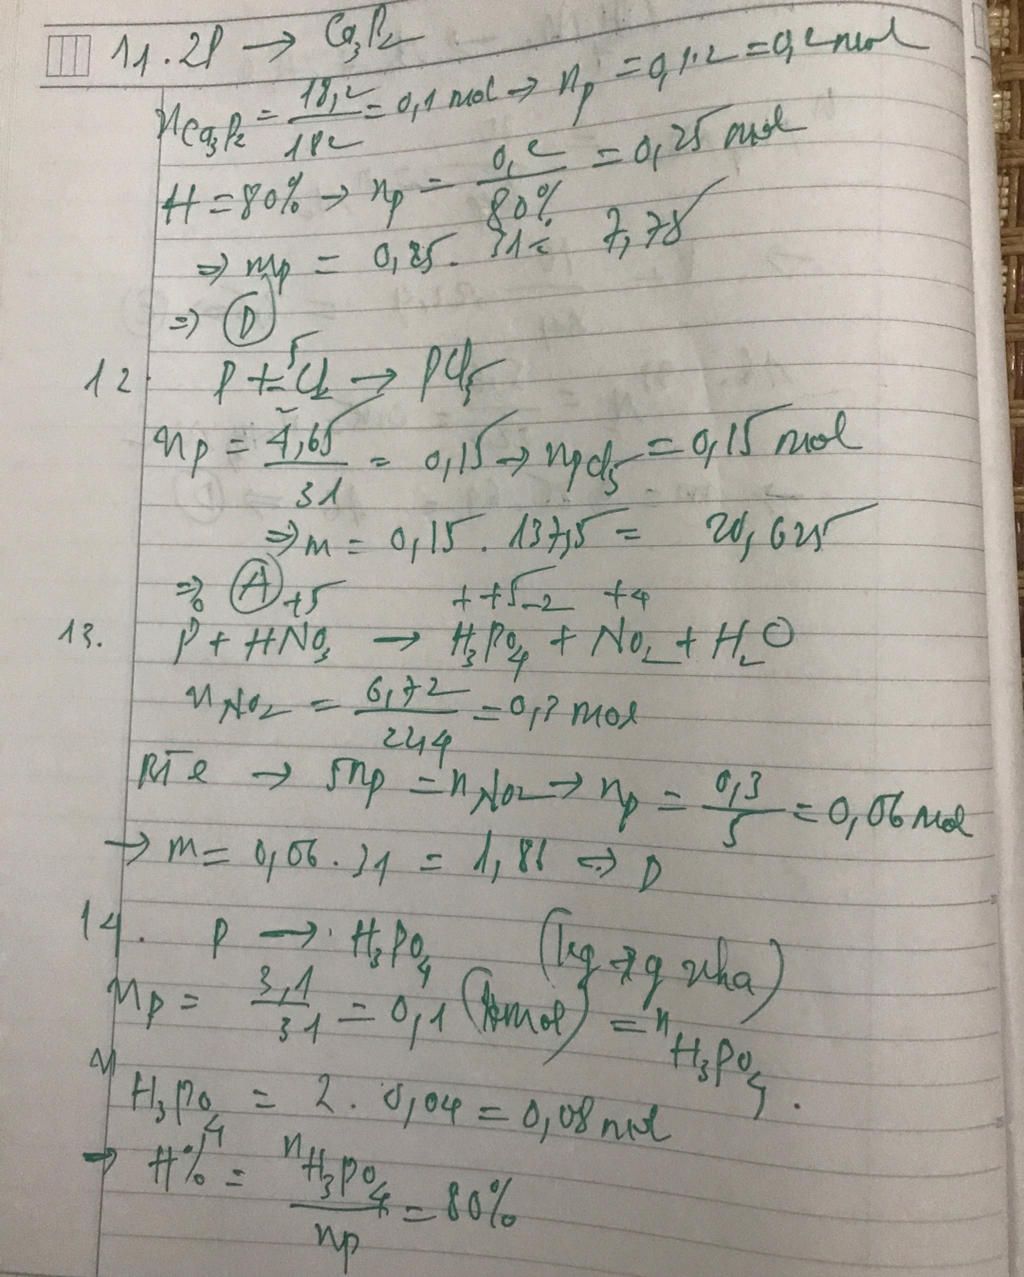 11. 2P → Ca₃P₂
nCa₃P₂ = 18,2/182 = 0,1 mol → np = 0,1.2 = 0,2 mol
H = 80% → np = 0,2/80% = 0,25 mol
⇒ mp = 0,25. 31 = 7,75
⇒ D
12. P + 5/2 Cl₂ → PCl₅
np = 4,65/31 = 0,15 → nPCl₅ = 0,15 mol
⇒ m = 0,15. 137,5 = 20,625
⇒ A
+5 + +5 -2 +4
13. P + HNO₃ → H₃PO₄ + NO₂ + H₂O
nNO₂ = 6,72/22,4 = 0,3 mol
BTe → 5np = nNO₂ → np = 0,3/5 = 0,06 mol
→ m = 0,06. 31 = 1,86 ⇒ D
14. P → H₃PO₄ (kg → g nha)
np = 3,1/31 = 0,1 (kmol) = nH₃PO₄.
nH₃PO₄ = 2. 0,04 = 0,08 mol
→ H% = nH₃PO₄/np = 80%